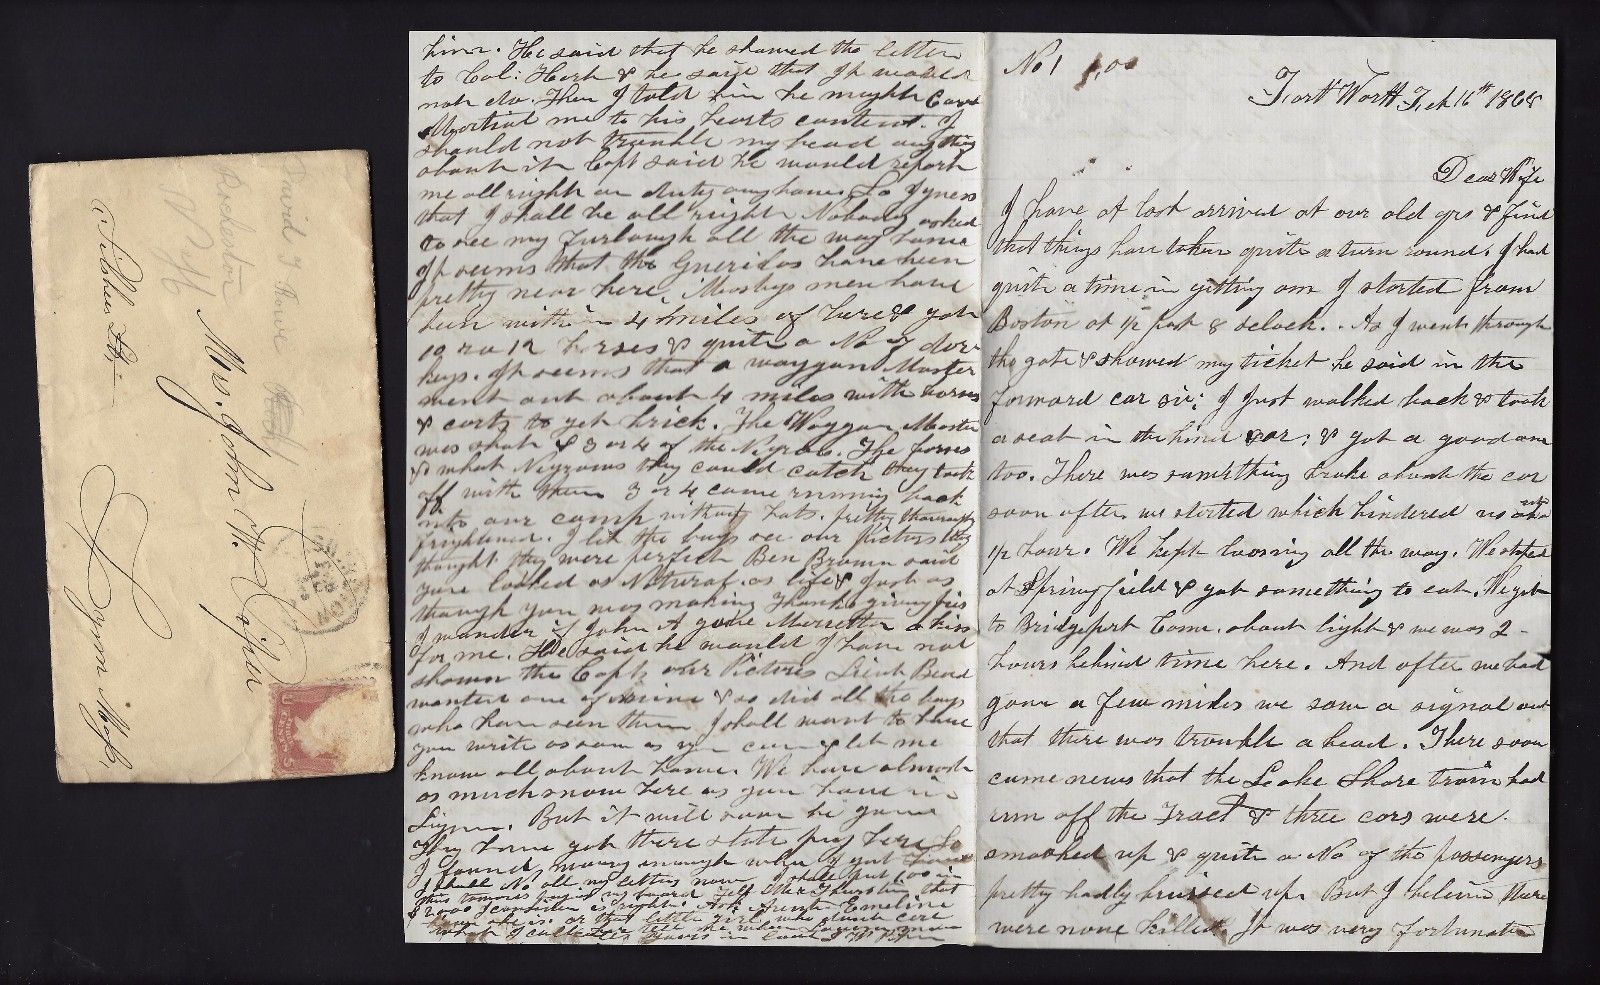 Mrs. John W.
Lynn Mass,
David
Rochester
N Y
No 1 1,00
Fort Worth Feb 16th 186
Dear Wife
I have at last arrived at our old & find
that things have taken quite a turn round. I had
quite a time in gitting I started from
Boston at 1/2 past 8 oclock. As I went through
the gate & showed my ticket he said in the
forward car sir; I Just walked back & took
a seat in the hind car; & got a good one
too. There was something broke about the car
soon after we started which hindered us
1/2 hour. We kept loosing all the way. We stoped
at Springfield & got something to eat. We got
to Bridgeport Conn. about light & we was 2
hours behind time here. And after we had
gone a few miles we saw a signal out
that there was trouble a head. There soon
came news that the Shore train had
run off the Tract & three cars were
smashed up & quite a No of the passengers
pretty badly bruised up. But I believe there
were none killed. It was very fortunate
him. He said that he showed the letter
to Col: & he said that it would
not do. Then I told him he might Court
Martial me to his hearts content. I
should not trouble my head any thing
about it Capt said he would report
me all right on duty So I guess
that I shall be all right Nobody asked
to see my furlough all the way home
It seems that the have been
pretty near here, Mosbys men have
been within 4 miles of here & got
10 or 12 horses & quite a No of dar
keys. It seems that a waggon Master
went out about 4 miles with horses
& carts to get brick. The Waggon Master
was shot & 3 or 4 of the Negroes. The horses
& what they could catch they took
off with them 3 or 4 came running back
into our camp without hats. pretty
frightened. I let the boys see our Picturs they
thought they were perfect Ben Brown said
yours looked as Natural as life & just as
though you was making Thanksgiving pies
I wonder if John A gave a kiss
for me. He said he would I have not
shown the Capt our Picturs Lieut
wanted one of mine & so did all the boys
who have seen them I shall want to have
you write as soon as you can & let me
know all about home. We have almost
as much snow here as you have in
Lynn. But it will soon be gone
They have got there state pay here So
I found money enough when I got
I shall No all my letters now I shall put 1.00 in
this
$2000 I consider is right. Ask Aunt Emeline
or that little girl who
tell me when